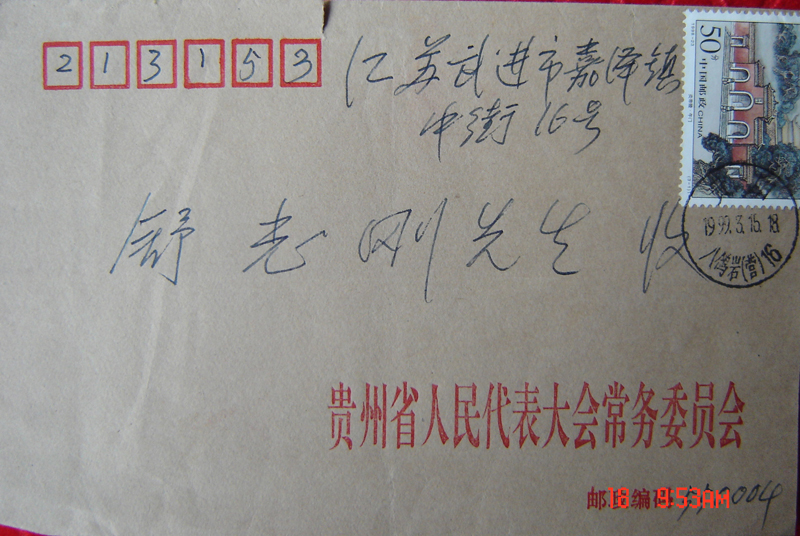 213153
江苏武进市嘉泽镇
中街16号
舒志刚先生 收
50分
中国邮政 CHINA
1999.3.15.18
16
贵州省人民代表大会常务委员会
邮政编码 550004
8:53AM